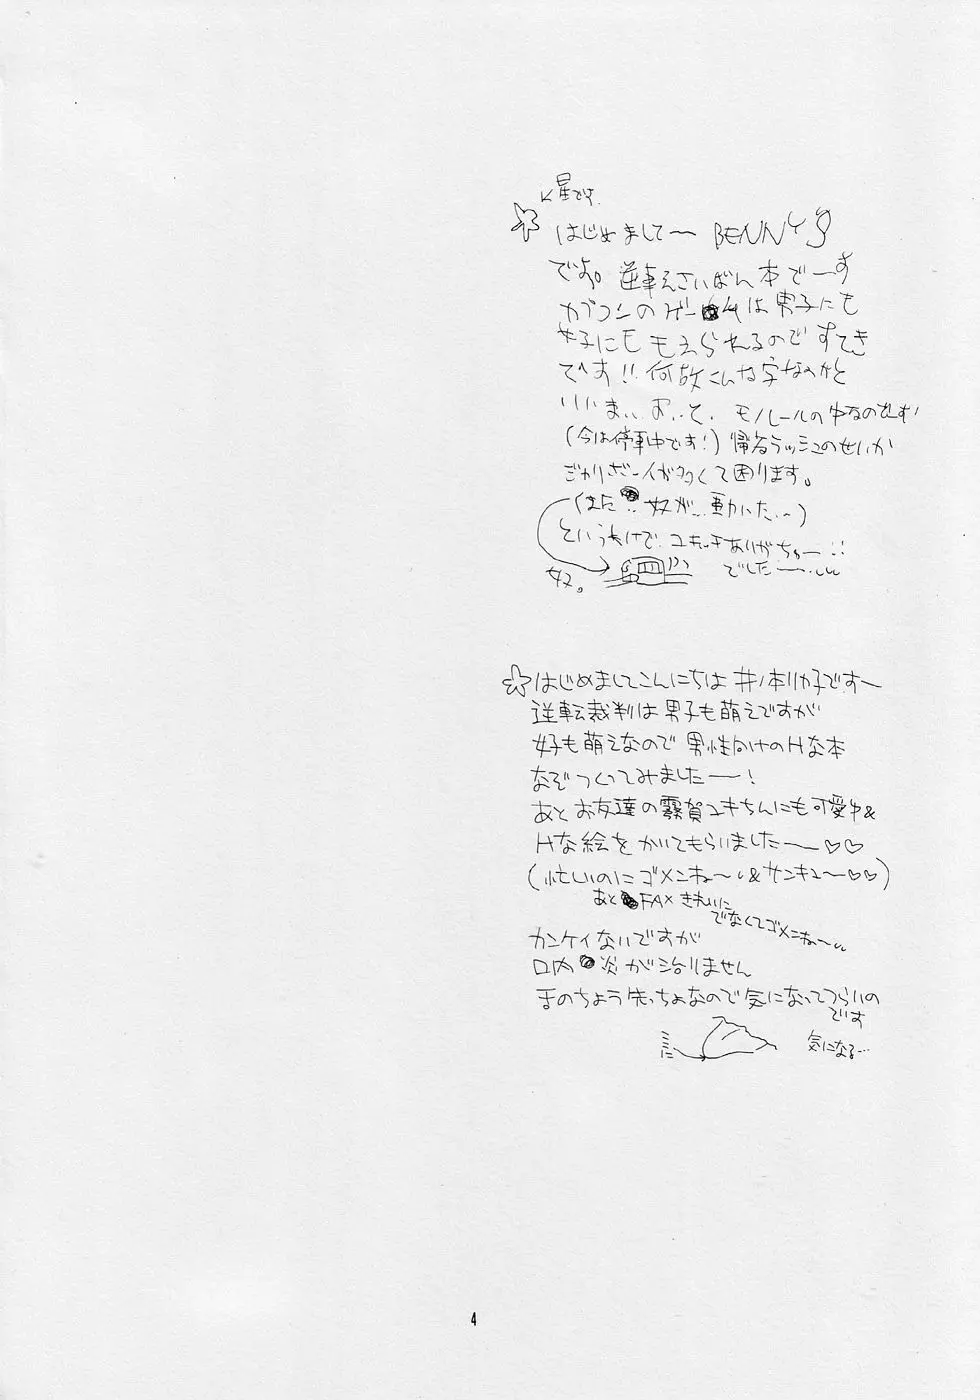 星です。
はじめまして〜 BENNY'S
です。逆転さいばん本でーす
カプコンのゲームは男子にも
女子にももえられるのですてき
です!!何故こんな字なのかと
いいますと、モノレールの中なのです!
(今は停車中です!)帰省ラッシュのせいか
人が多くて困ります。
(また 奴が…動いた…)
というわけで、ユキちゃんありがちゅー!!
でした〜
奴。
☆はじめましてこんにちは 井ノ本リカ子です〜
逆転裁判は男子も萌えですが
女子も萌えなので 男性向けのHな本
なぞつくってみましたー!
あとお友達の霧賀ユキちんにも可愛ゆ&
Hな絵をかいてもらいました〜♡♡
(忙しいのにゴメンね〜&サンキュ〜♡♡)
あと FAXきれいに
でなくてゴメンね〜
カンケイないですが
口内炎が治りません
舌のちょう先っちょなので気になってつらいの
です
気になる…
4